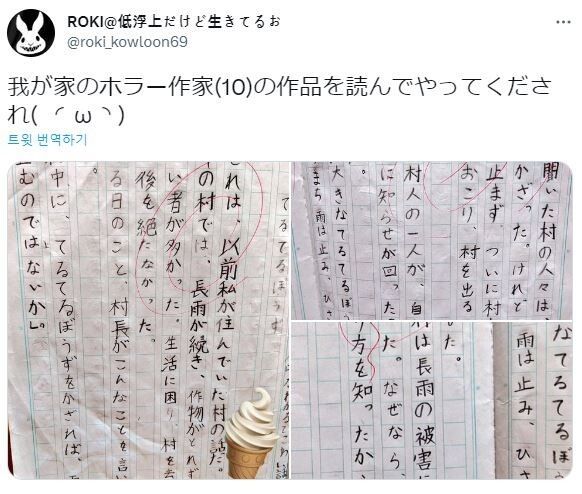 ROKI@低浮上だけど生きてるお
@roki_kowloon69
我が家のホラー作家(10)の作品を読んでやってくださ
れ( ◜ω◝ )
트윗 번역하기
てるてるぼうず
れは、以前私が住んでいた村の話だ。
の村では、長雨が続き、作物がとれず
い者が多かった。生活に困り、村を去
後を絶たなかった。
る日のこと、村長がこんなことを言い
中に、てるてるぼうずをかざれば、
むのではないか」。
聞いた村の人々は、
かざった。けれど
止まず、ついに村
おこり、村を出る
村人の一人が、自
に知らせが回った
大きなてるてるぼう
まち雨は止み、ひさ
なてるてるぼう
雨は止み、ひさ
いた。
は長雨の被害に
た。なぜなら、
方を知ったから